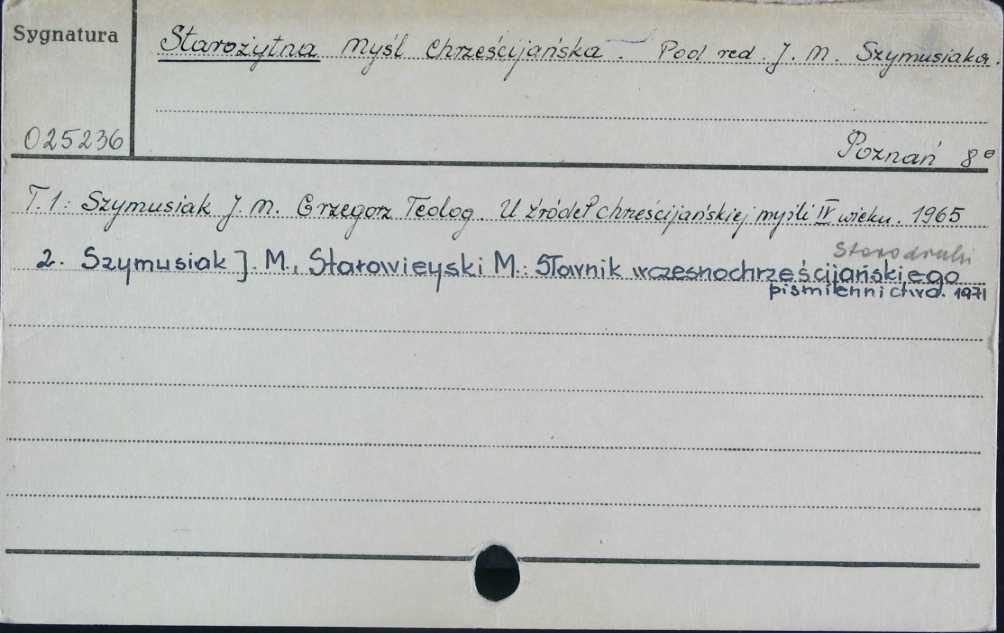 Sygnatura
Starożytna myśl chrześcijańska. Pod red. J. M. Szymusiaka.
025236
Poznań 8°
T. 1: Szymusiak J. M. Grzegorz Teolog. U źródeł chrześcijańskiej myśli IV wieku. 1965
Starodruki
2. Szymusiak J. M., Starowieyski M.: Słownik wczesnochrześcijańskiego
piśmiennictwa. 1971